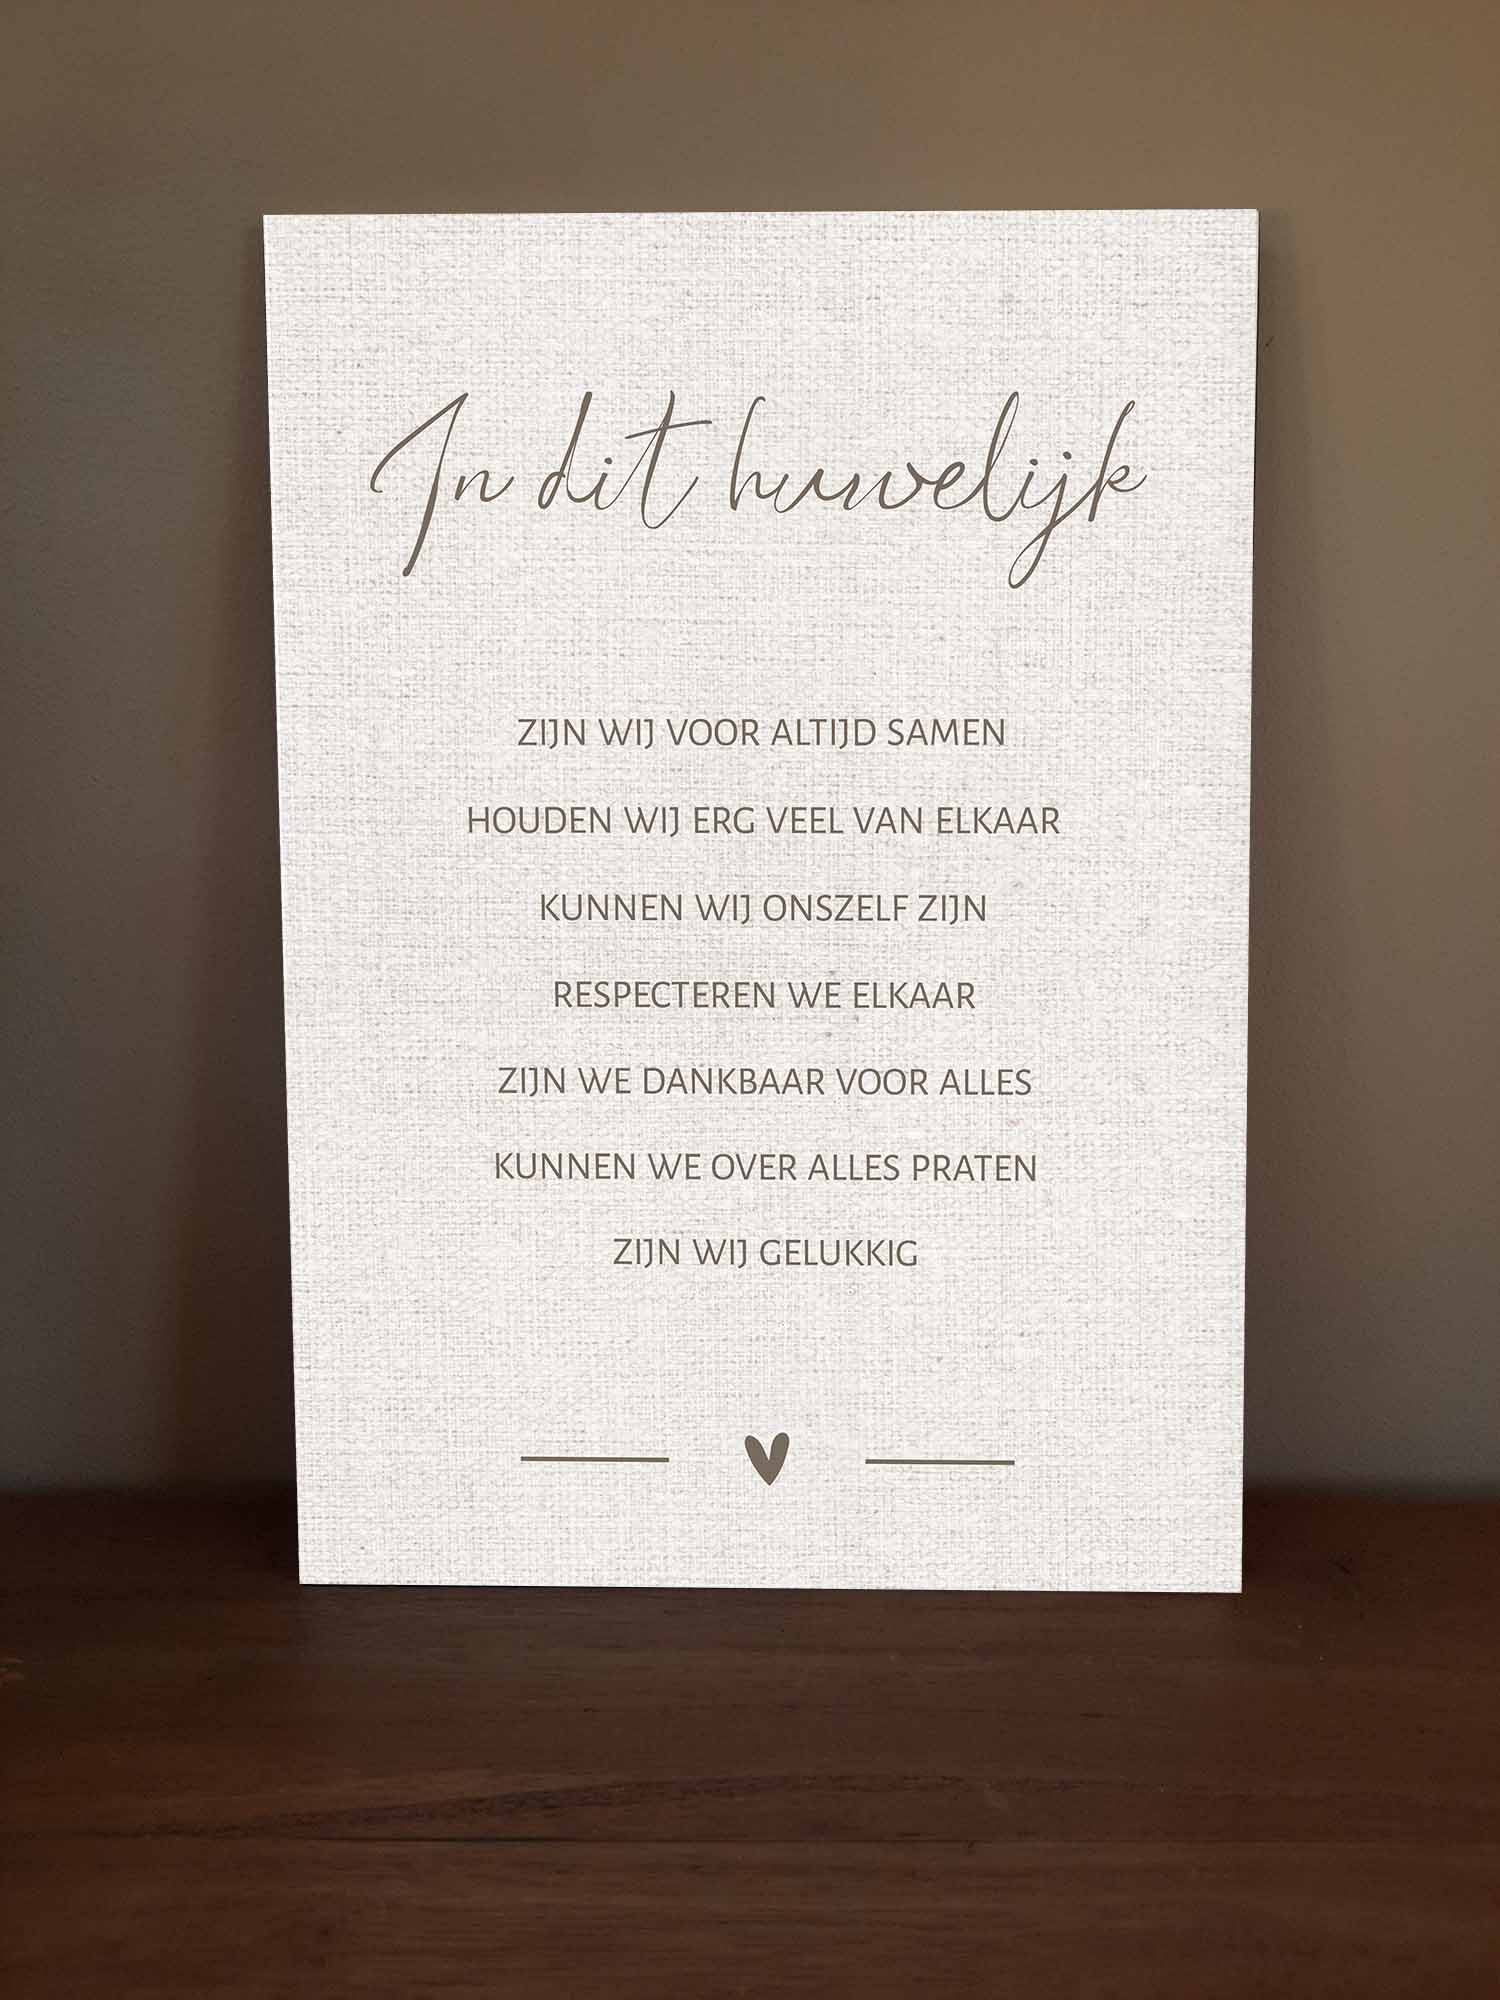 In dit huwelijk
ZIJN WIJ VOOR ALTIJD SAMEN
HOUDEN WIJ ERG VEEL VAN ELKAAR
KUNNEN WIJ ONSZELF ZIJN
RESPECTEREN WE ELKAAR
ZIJN WE DANKBAAR VOOR ALLES
KUNNEN WE OVER ALLES PRATEN
ZIJN WIJ GELUKKIG